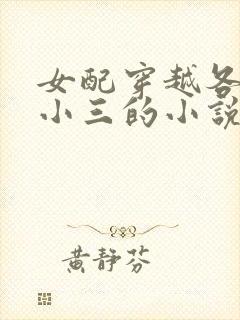 女配穿越各
小三的小說
黃靜芬